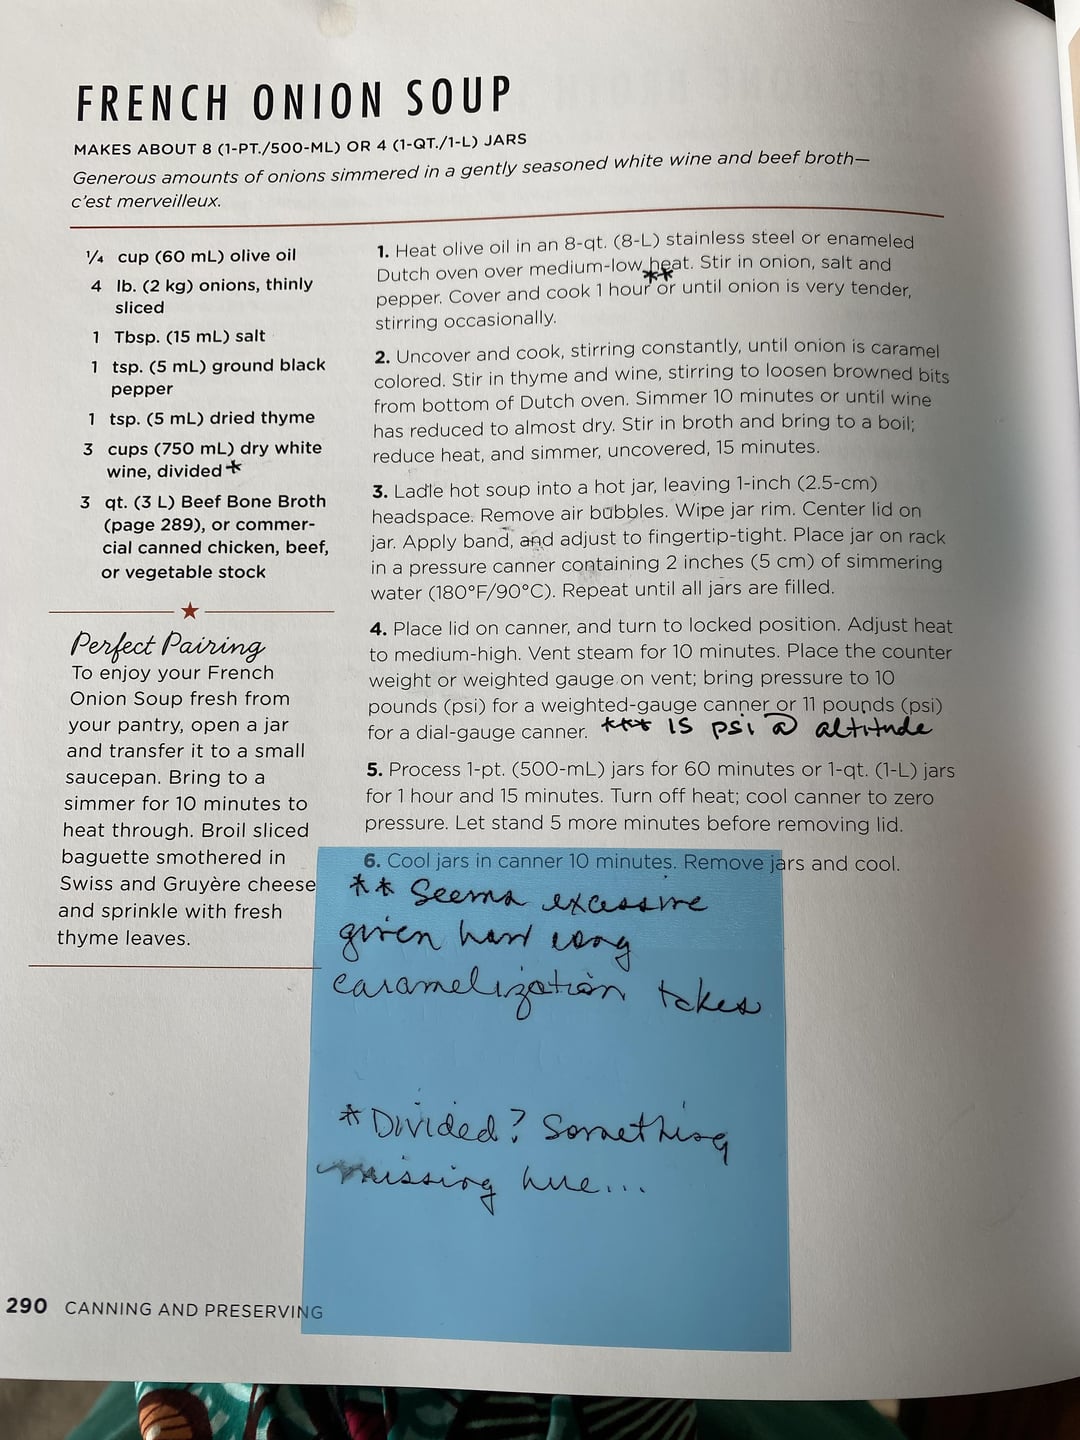 FRENCH ONION SOUP
MAKES ABOUT 8 (1-PT./500-ML) OR 4 (1-QT./1-L) JARS
Generous amounts of onions simmered in a gently seasoned white wine and beef broth—
c'est merveilleux.
¼ cup (60 mL) olive oil
4 lb. (2 kg) onions, thinly
sliced
1 Tbsp. (15 mL) salt
1 tsp. (5 mL) ground black
pepper
1 tsp. (5 mL) dried thyme
3 cups (750 mL) dry white
wine, divided *
3 qt. (3 L) Beef Bone Broth
(page 289), or commer-
cial canned chicken, beef,
or vegetable stock
Perfect Pairing
To enjoy your French
Onion Soup fresh from
your pantry, open a jar
and transfer it to a small
saucepan. Bring to a
simmer for 10 minutes to
heat through. Broil sliced
baguette smothered in
Swiss and Gruyère cheese
and sprinkle with fresh
thyme leaves.
1. Heat olive oil in an 8-qt. (8-L) stainless steel or enameled
Dutch oven over medium-low heat. Stir in onion, salt and
pepper. Cover and cook 1 hour ** or until onion is very tender,
stirring occasionally.
2. Uncover and cook, stirring constantly, until onion is caramel
colored. Stir in thyme and wine, stirring to loosen browned bits
from bottom of Dutch oven. Simmer 10 minutes or until wine
has reduced to almost dry. Stir in broth and bring to a boil;
reduce heat, and simmer, uncovered, 15 minutes.
3. Ladle hot soup into a hot jar, leaving 1-inch (2.5-cm)
headspace. Remove air bubbles. Wipe jar rim. Center lid on
jar. Apply band, and adjust to fingertip-tight. Place jar on rack
in a pressure canner containing 2 inches (5 cm) of simmering
water (180°F/90°C). Repeat until all jars are filled.
4. Place lid on canner, and turn to locked position. Adjust heat
to medium-high. Vent steam for 10 minutes. Place the counter
weight or weighted gauge on vent; bring pressure to 10
pounds (psi) for a weighted-gauge canner or 11 pounds (psi)
for a dial-gauge canner. *** 15 psi @ altitude
5. Process 1-pt. (500-mL) jars for 60 minutes or 1-qt. (1-L) jars
for 1 hour and 15 minutes. Turn off heat; cool canner to zero
pressure. Let stand 5 more minutes before removing lid.
6. Cool jars in canner 10 minutes. Remove jars and cool.
** Seems excessive
given how long
caramelization takes
* Divided? Something
missing here...
290 CANNING AND PRESERVING